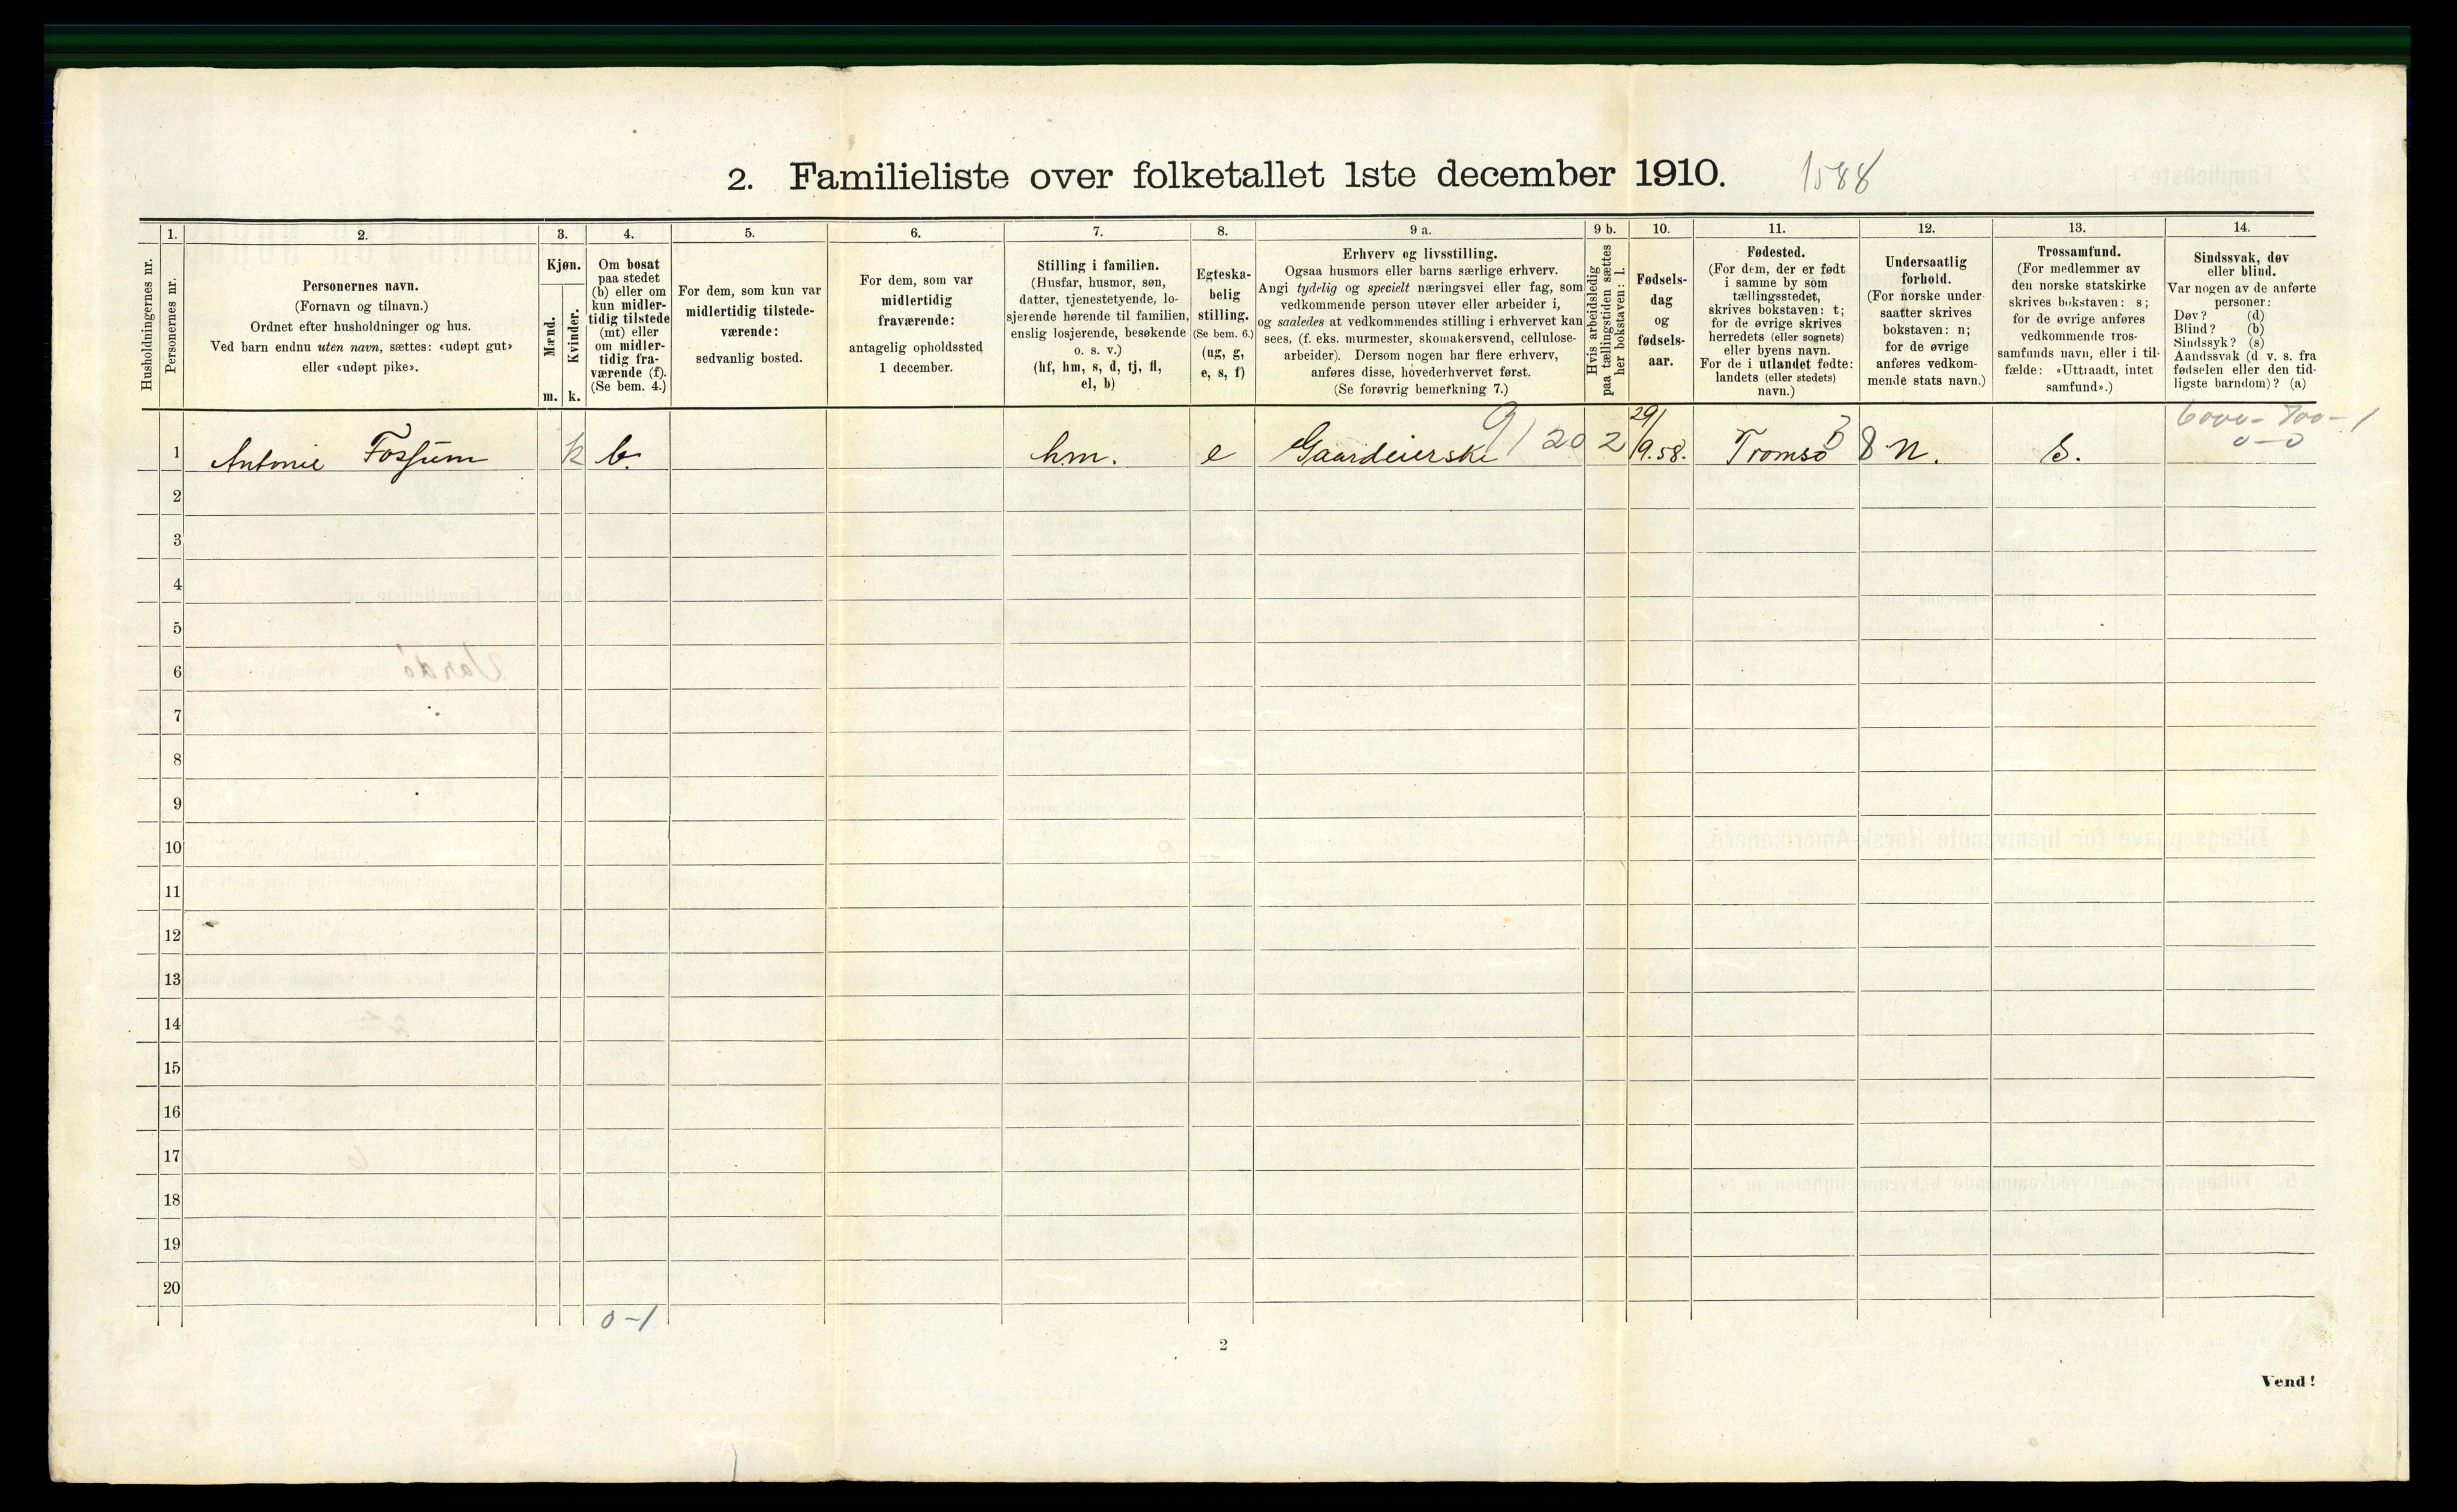 2. Familieliste over folketallet 1ste december 1910. 1588
Husholdningernes nr.
1.
Personernes nr.
2.
Personernes navn.
(Fornavn og tilnavn.)
Ordnet efter husholdninger og hus.
Ved barn endnu uten navn, sættes: «udøpt gut»
eller «udøpt pike».
3.
Kjøn.
Mænd.
Kvinder.
m. k.
4.
Om bosat
paa stedet
(b) eller om
kun midler-
tidig tilstede
(mt) eller
om midler-
tidig fra-
værende (f).
(Se bem. 4.)
5.
For dem, som kun var
midlertidig tilstede-
værende:
sedvanlig bosted.
6.
For dem, som var
midlertidig
fraværende:
antagelig opholdssted
1 december.
7.
Stilling i familien.
(Husfar, husmor, søn,
datter, tjenestetyende, lo-
sjerende hørende til familien,
enslig losjerende, besøkende
o. s. v.)
(hf, hm, s, d, tj, fl,
el, b)
8.
Egteska-
belig
stilling.
(Se bem. 6.)
(ug, g,
e, s, f)
9 a.
Erhverv og livsstilling.
Ogsaa husmors eller barns særlige erhverv.
Angi tydelig og specielt næringsvei eller fag, som
vedkommende person utøver eller arbeider i,
og saaledes at vedkommendes stilling i erhvervet kan
sees, (f. eks. murmester, skomakersvend, cellulose-
arbeider). Dersom nogen har flere erhverv,
anføres disse, hovederhvervet først.
(Se forøvrig bemerkning 7.)
9 b.
Hvis arbeidsledig
paa tællingstiden sættes
her bokstaven: l.
10.
Fødsels-
dag
og
fødsels-
aar.
11.
Fødested.
(For dem, der er født
i samme by som
tællingsstedet,
skrives bokstaven: t;
for de øvrige skrives
herredets (eller sognets)
eller byens navn.
For de i utlandet fødte:
landets (eller stedets)
navn.)
12.
Undersaatlig
forhold.
(For norske under-
saatter skrives
bokstaven: n;
for de øvrige
anføres vedkom-
mende stats navn.)
13.
Trossamfund.
(For medlemmer av
den norske statskirke
skrives bokstaven: s;
for de øvrige anføres
vedkommende tros-
samfunds navn, eller i til-
fælde: «Uttraadt, intet
samfund».)
14.
Sindssvak, døv
eller blind.
Var nogen av de anførte
personer:
Døv? (d)
Blind? (b)
Sindssyk? (s)
Aandssvak (d. v. s. fra
fødselen eller den tid-
ligste barndom)? (a)
6000-800-1
0-0
1 Antonie Fossum k b. hm. e Gaardeierske 9/20 2 29/9.58. Tromsø 3 8 n. S.
2
3
4
5
6
7
8
9
10
11
12
13
14
15
16
17
18
19
20
0-1
2
Vend!